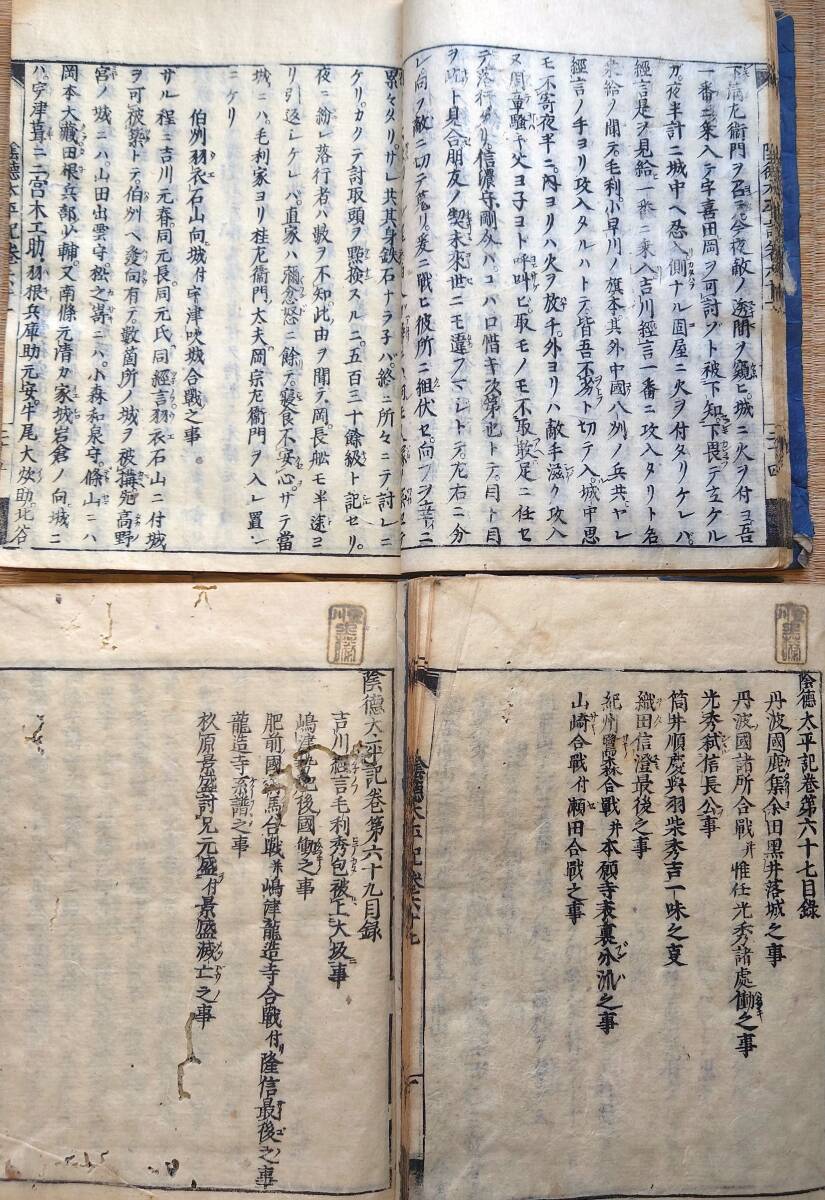 下肥左衛門ヲ召テ今夜敵ノ透間ヲ窺ヒ城ニ火ヲ付ヨ吾
一番ニ乗入テ字喜田岡ヲ可討ゾト被下知下畏テ立ケル
ガ夜半計ニ城中ヘ忍入側ナル固屋ニ火ヲ付タリケレバ
經言是ヲ見給一番ニ乗入吉川經言一番ニ攻入タリト名
乗給ノ聞テ毛利小早川ノ旗本其外中國八刕ノ兵共ヤレ
經言ノ手ヨリ攻入タルハトテ皆吾不劣ト切テ入城中思
モ不寄夜半ニ内ヨリハ火ヲ放チ外ヨリハ敵手滋ク攻入
又周章騒キ父ヨ子ヨト呼叫ヒ取モノモ不取敢足ニ任セ
テ落行ケリ信濃守剛ハコハ口惜キ次第也トテ目ト目
ヲ見合朋友ノ契未來世ニモ違フマシトテ左右ニ分
レ向フ敵ニ切テ蒐リ爰ニ戰ヒ彼所ニ組伏セ向フヲ幸ニ
累々タリサレ共其身鉄石ナラ子ハ終ニ所々ニテ討レニ
ケリカクテ討取頭ヲ點検スルニ五百三十餘級ト記セリ
夜ニ紛レ落行者ハ數ヲ不知此由ヲ聞テ岡長舩モ半途ヨ
リ引返シケレバ直家ハ彌忿怒ニ餘テ寝食不安心サテ當
城ニハ毛利家ヨリ桂左衞門大夫岡宗左衞門ヲ入レ置
ニケリ
伯刕羽衣石山向城付宇津吹城合戰之事
サル程ニ吉川元春同元長同元氏同經言羽衣石山ニ付城
ヲ可被築トテ伯刕ヘ發向有テ數箇所ノ城ヲ被搆先高野
宮ノ城ニハ山田出雲守松之嵜ニハ小森和泉守條山ニハ
岡本大藏田根兵部少輔又南條元清カ家城岩倉ノ向城ニ
ハ宇津葺ニ二宮木工助羽根兵庫助元安牛尾大炊助北谷
陰德太平記卷第六十七目錄
丹波國鹿集余田黒井落城之事
丹波國諸所合戰并惟任光秀諸處働之事
光秀弑信長公事
筒井順慶與羽柴秀吉一味之事
織田信澄最後之事
紀州鷺森合戰并本願寺表裏分派之事
山崎合戰付瀬田合戰之事
陰德太平記卷第六十九目錄
吉川經言毛利秀包被上大坂事
嶋津肥後國働之事
肥前國有馬合戰并嶋津龍造寺合戰付隆信最後之事
龍造寺系譜之事
杦原景盛討兄元盛付景盛滅亡之事